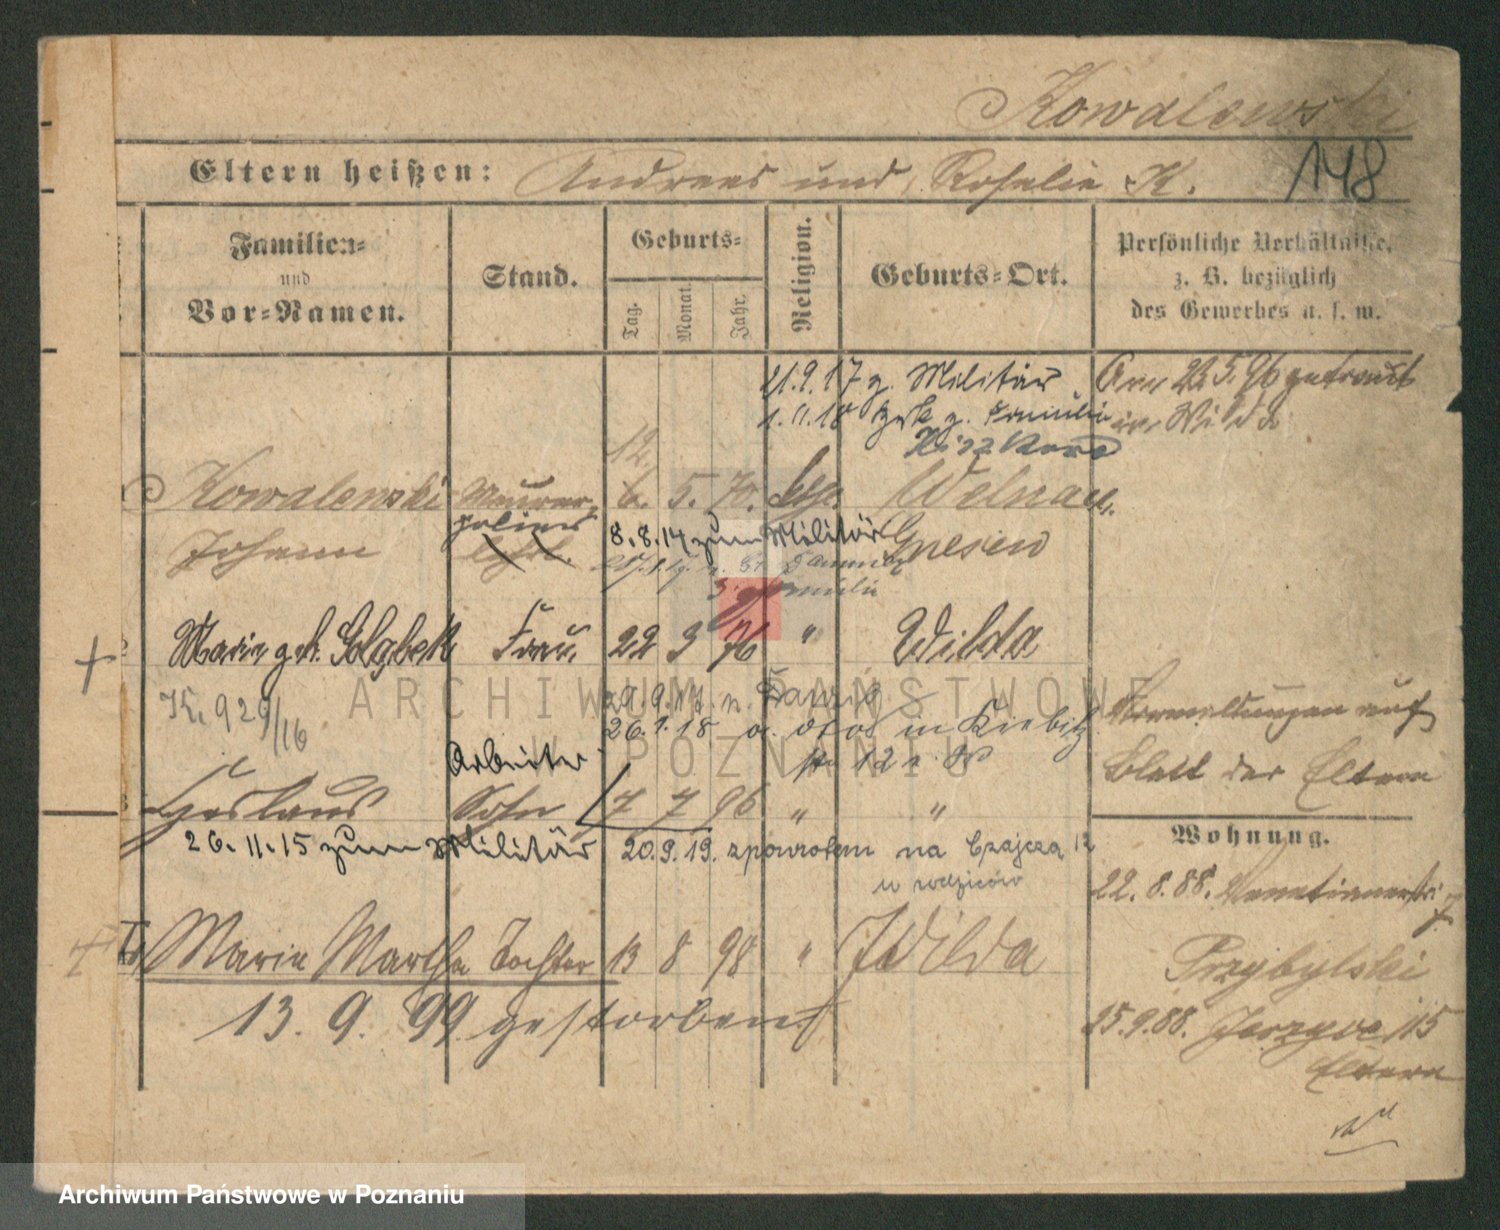 Kowalewski
148
Eltern heißen: Andreas und Rosalie K.
Familien-
und
Vor-Namen.
Stand.
Geburts-
Tag.
Monat.
Jahr.
Religion.
Geburts-Ort.
Persönliche Verhältnisse,
z. B. bezüglich
des Gewerbes u. s. w.
21.9.17 z. Militär
1.11.18 zrk z. Familie
Am 22.5.96 getraut
in Wilda
12.
Kowalewski Maurer- 6. 5. 70. kth. Welnau
polier
Johann
8.8.14 zum Militär
Gnesen
Marie geb. Golabek Frau 22 3 76 " Wilda
K. 929/16
29.9.17 n. Danzig
26.1.18 v. dros in Kiebitz
str 12
Vermeldungen auf
Blatt der Eltern
Arbeiter
Ceslaus Sohn 7 7 96 " "
26.11.15 zum Militär
20.9.19. z powrotem na Czajcza 12
u rodziców
Wohnung.
22.8.88. Venetianerstr 7
Przybylski
15.9.88. Jerzyce 115
Eltern
Marie Martha Tochter 13 8 98 " Wilda
13. 9. 99 gestorben
ARCHIWUM PAŃSTWOWE
W POZNANIU
Archiwum Państwowe w Poznaniu